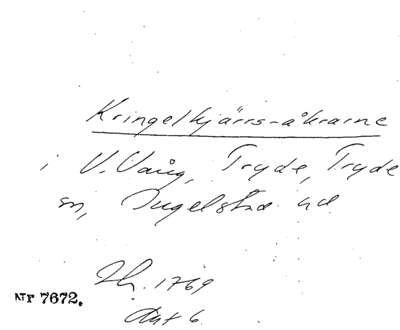 Kringelkjärrs-åkrarne
i V. Vång, Tryde, Tryde
sn, Ingelstad hd.
Sk. 1769
Akt 6.
Nr 7672.